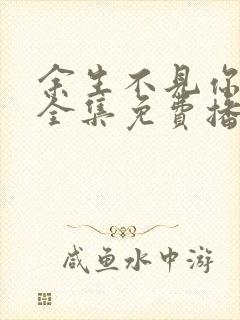 余生不见你
全集免費播
咸鱼水中游